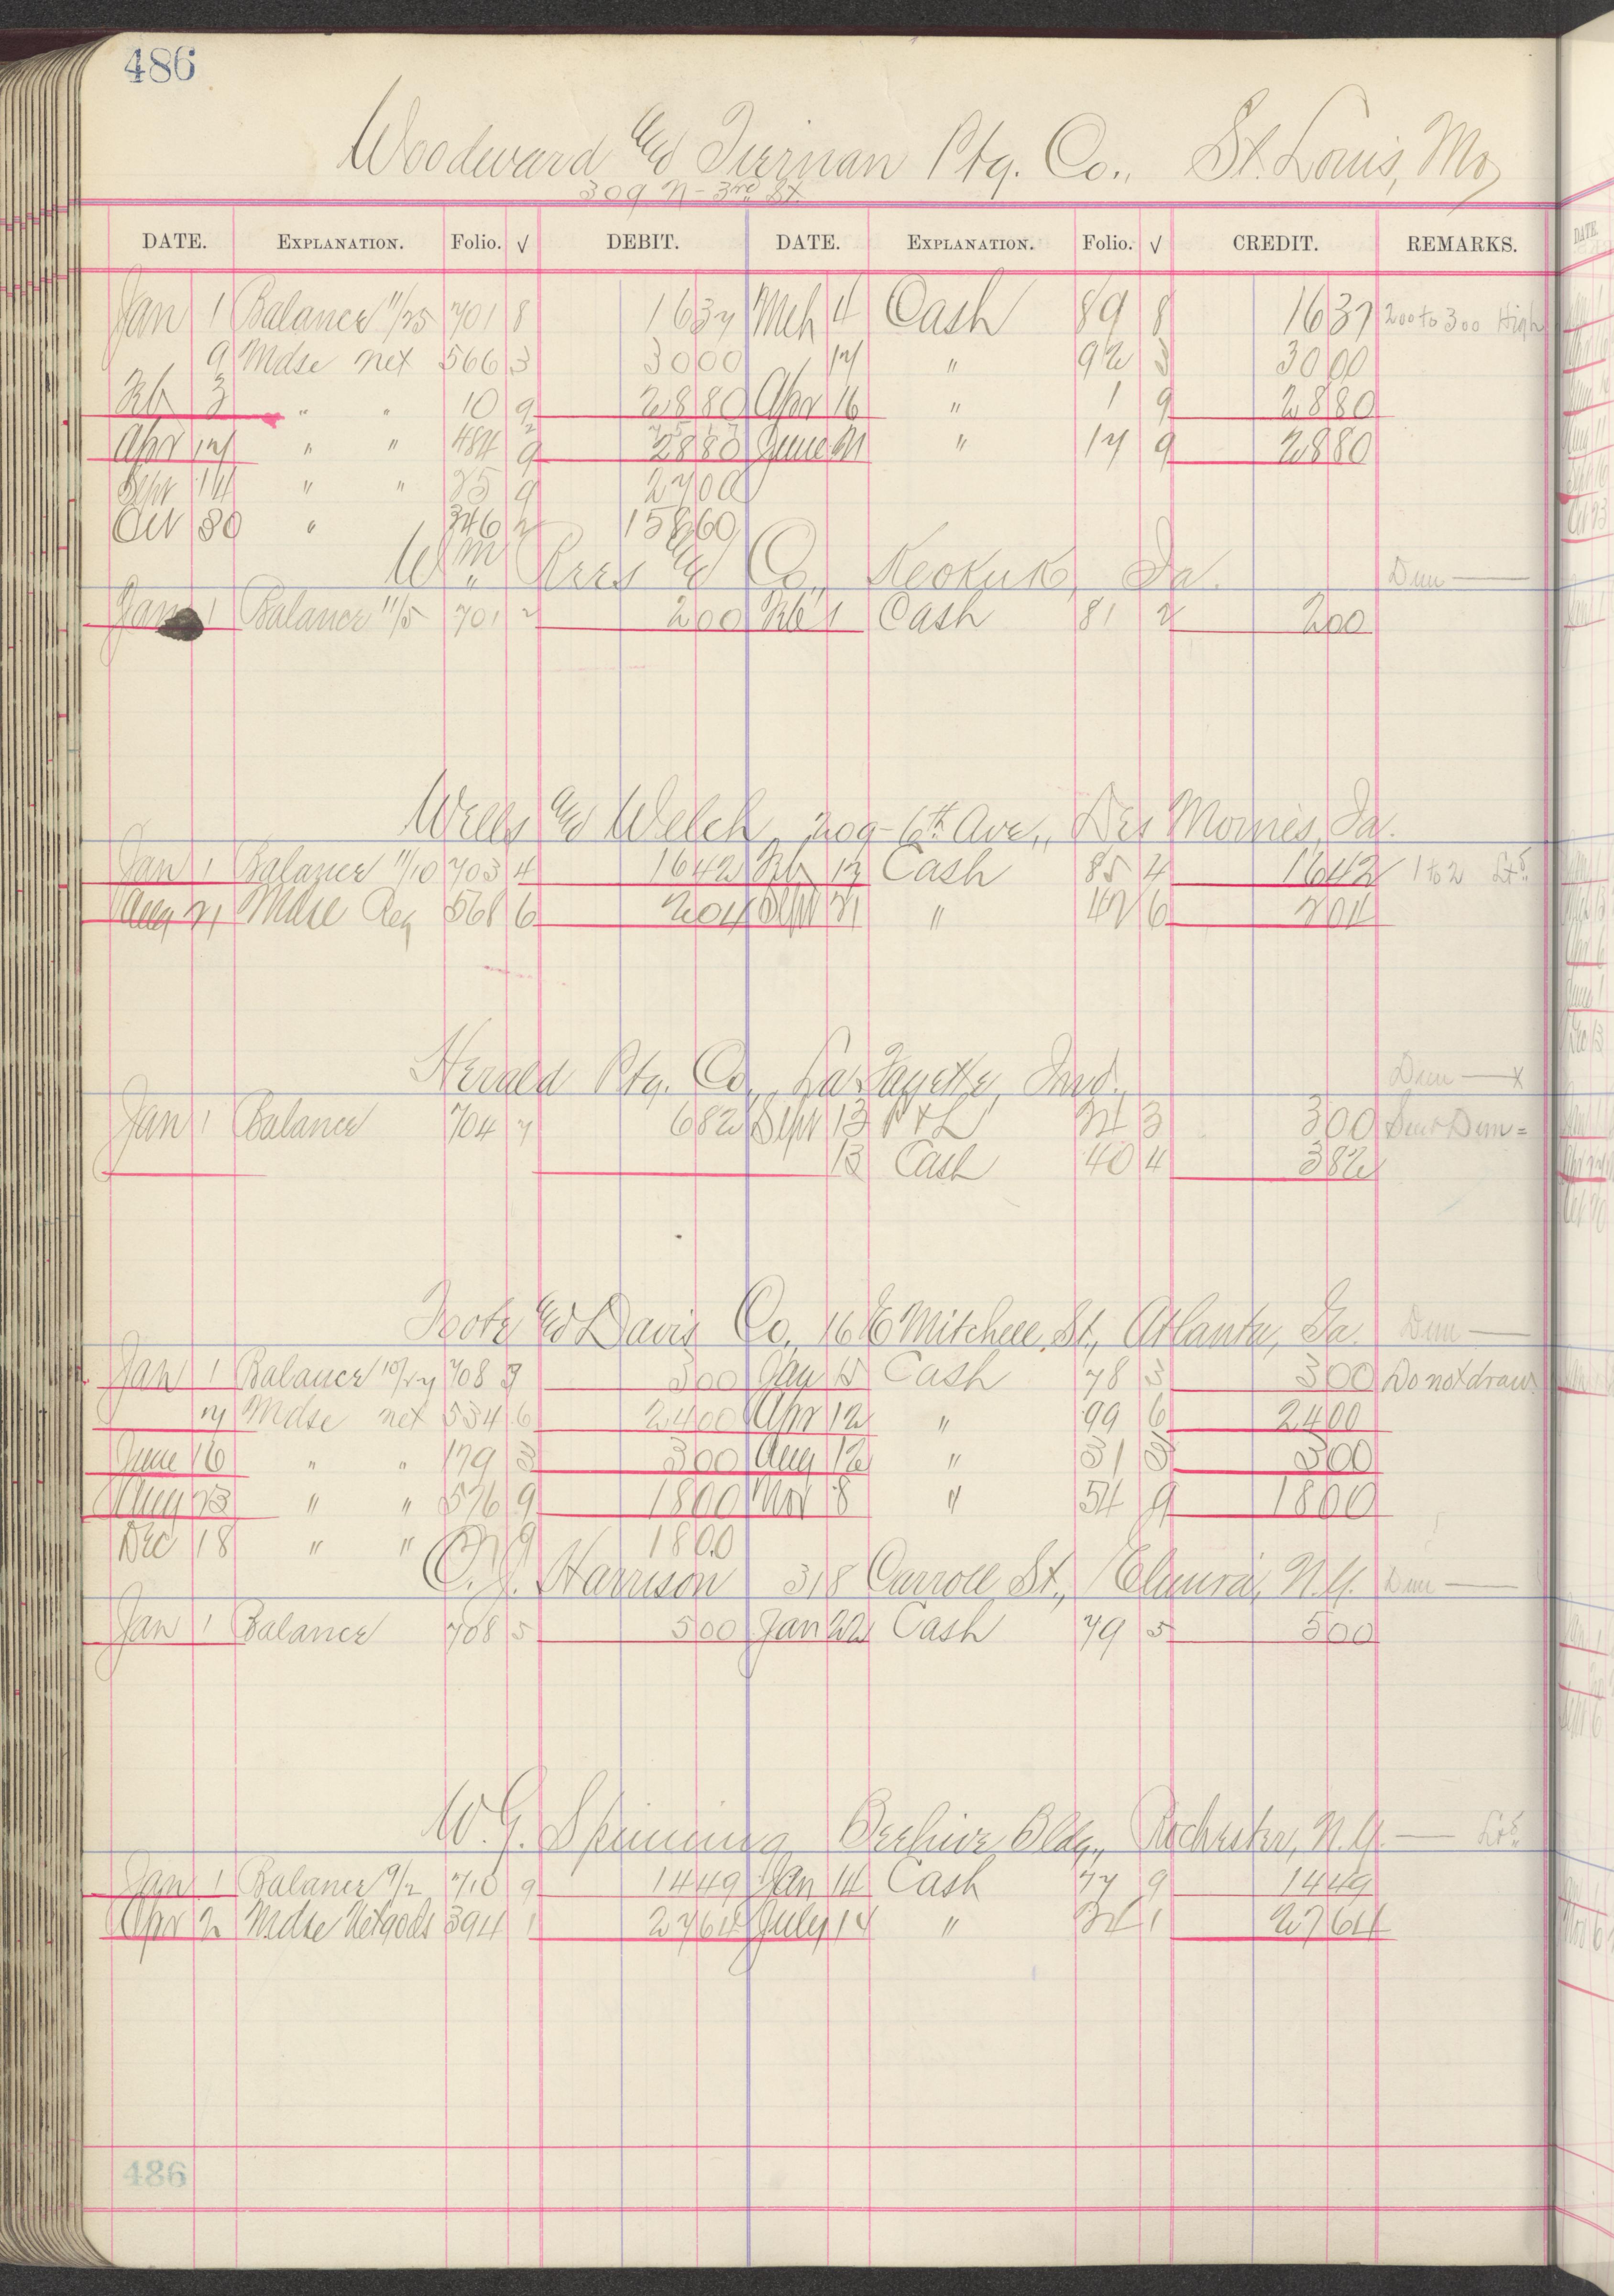 486
Woodward and Tiernan Ptg. Co., St. Louis, Mo
309 N - 3rd St
DATE. EXPLANATION. Folio. √ DEBIT. DATE. EXPLANATION. Folio. √ CREDIT. REMARKS.
Jan 1 Balance 11/25 701 8 16 37 Mch 4 Cash 89 8 16 37 200 to 300 High
9 Mdse net 566 3 30 00 17 " 92 3 30 00
Feb 3 " " 10 9 28 80 Apr 16 " 1 9 28 80
Apr 17 " " 484 9 28 80 June 21 " 17 9 28 80
Sept 14 " " 25 9 27 00
Oct 30 " 346 2 158 60
Wm Rees and Co., Keokuk, Ia. Dun —
Jan 1 Balance 11/5 701 2 2 00 Feb 1 Cash 81 2 2 00
Wells and Welch, 209 - 6th Ave., Des Moines, Ia.
Jan 1 Balance 11/10 703 4 16 42 Feb 17 Cash 85 4 16 42 1 to 2 Lts
Aug 21 Mdse Reg 568 6 2 04 Sept 21 " 42 6 2 04
Herald Ptg. Co., La Fayette, Ind., Dun — x
Jan 1 Balance 704 7 6 82 Sept 13 P & L 3 3 00 Dun =
13 Cash 40 4 3 82
Foote and Davis Co., 16 E Mitchell St., Atlanta, Ga. Dun —
Jan 1 Balance 10/27 708 3 3 00 Jan 15 Cash 78 3 3 00 Do not draw
17 Mdse net 534 6 24 00 Apr 12 " 99 6 24 00
June 16 " " 179 3 3 00 Aug 12 " 31 3 3 00
Aug 23 " " 576 9 18 00 Nov 8 " 54 9 18 00
Dec 18 " " 9 18 00
C. J. Harrison 318 Carroll St., Elmira, N.Y. Dun —
Jan 1 Balance 708 5 5 00 Jan 22 Cash 79 5 5 00
W. G. Spinning Beehive Bldg., Rochester, N.Y. — Lts
Jan 1 Balance 9/2 710 9 14 49 Jan 14 Cash 77 9 14 49
Apr 2 Mdse Net gods 394 1 27 64 July 14 " 1 27 64
486